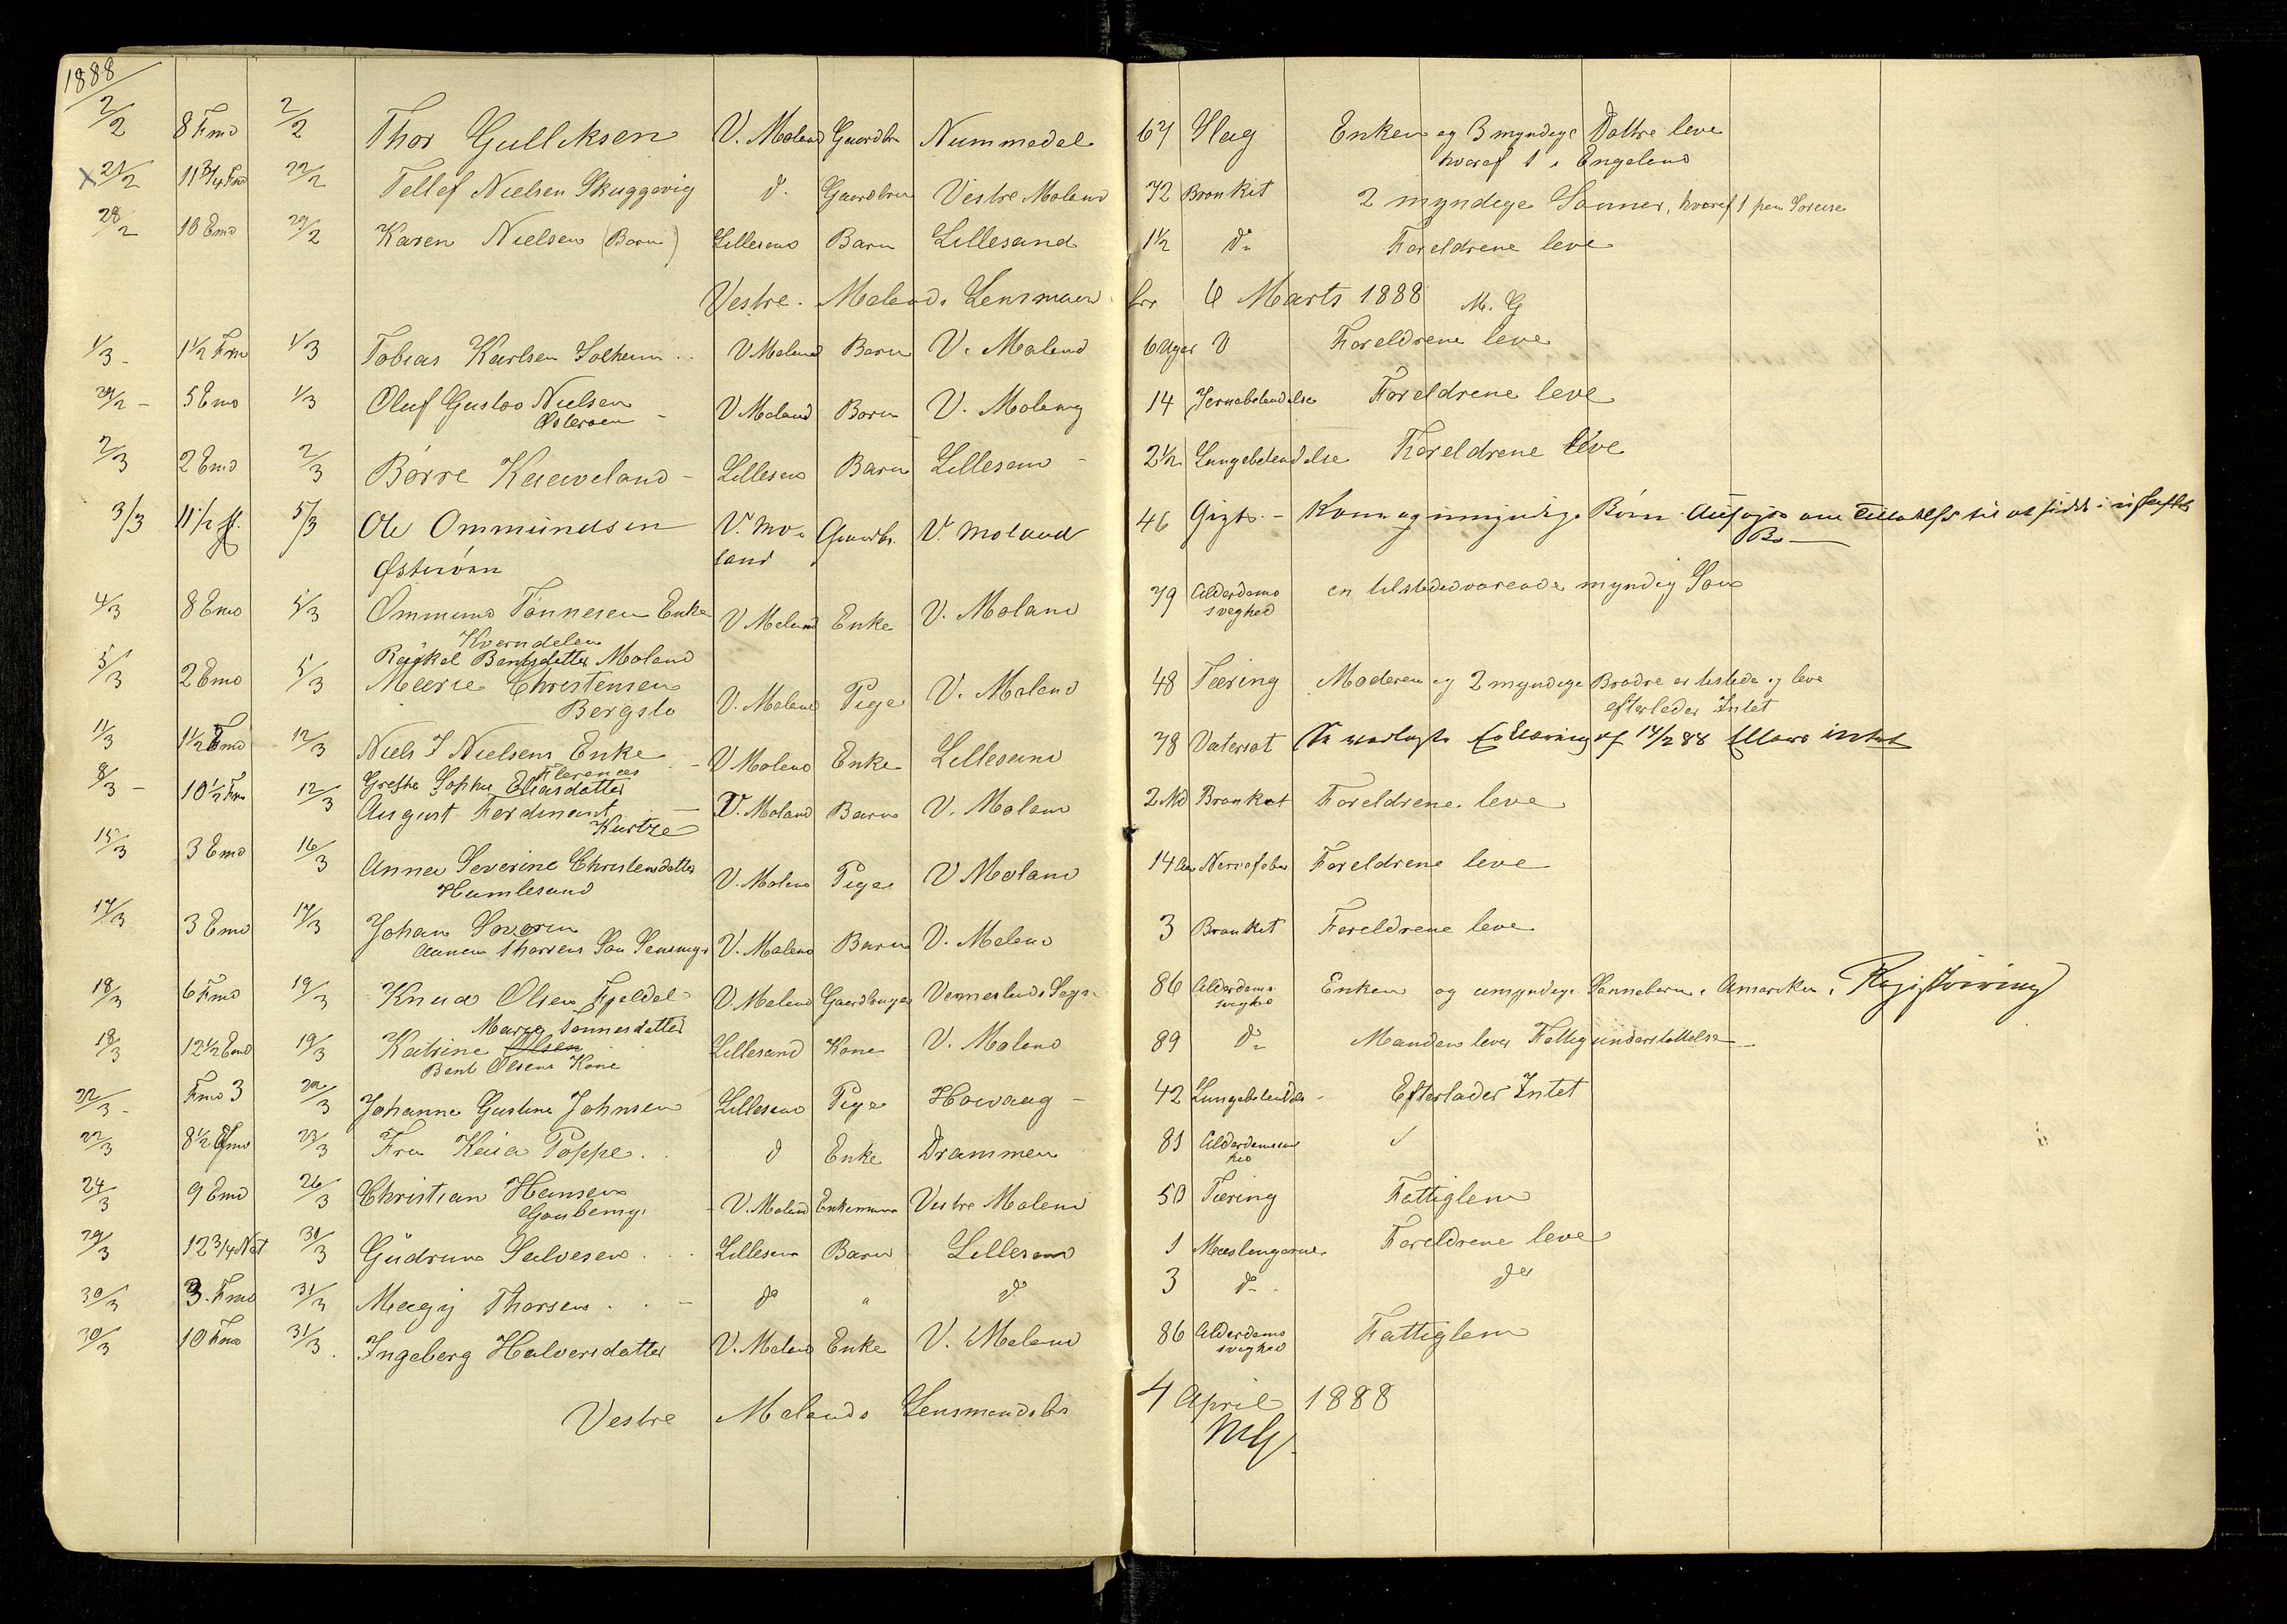 1888
2/2 8 Fmd 2/2 Thor Gulleksen V. Moland Gaardbr Nummedal 67 Slag Enken og 3 myndige Døttre leve
hvoraf 1 i Engeland
x 21/2 11 3/4 Fmd 22/2 Tellef Nielsen Skuggevig d. Gaardbru Vestre Moland 72 Bronkit 2 myndige Sønner, hvoraf 1 paa
28/2 10 Emd 29/2 Karen Nielsen (Barn) Lillesand Barn Lillesand 1 1/2 do Foreldrene leve
Vestre Molands Lensmann 6 Marts 1888 M. G
1/3 1 1/2 Fmd 1/3 Tobias Karlsen V Moland Barn V. Moland 6 Uger Foreldrene leve
29/2 - 5 Emd 1/3 Oluf Gustav Nielsen V Moland Barn V. Moland 14 Jernebetendelse Foreldrene leve
2/3 2 Emd 2/3 Børre Lillesand Barn Lillesand - 2 1/2 Lungebetendelse Foreldrene leve
3/3 11 1/2 5/3 Ole Ommundsen V. Mo- Gaardbr. V. Moland 46 Gigt. - Kone og umyndige Børn til at sidde i uskiftet
Bo
land
4/3 8 Emd 5/3 Ommund Tønnesen Enke V Moland Enke V. Moland 79 Alderdoms en tilstedeværende myndig Søn
sveghed
Kverndalen
Rakel Bentsdatter Moland
5/3 2 Emd 5/3 Marie Christensen V. Moland Pige V. Moland 48 Tæring Moderen og 2 myndige Brødre er tilstede og leve
Bergslo efterlader Intet
11/3 1 1/2 Emd 12/3 Niels J Nielsens Enke - V Moland Enke Lillesand 78 Vatersot Erklæring af 14/2 88 Intet
Grethe Sophie Eliasdatter
8/3 - 10 1/2 Fm 12/3 August Ferdinant - V. Moland Barn V. Moland 2 Md Bronkit Foreldrene leve
Kurtze
15/3 3 Emd 16/3 Anna Severine Christensdatter V. Moland Pige V Moland 14 Aar Nervefeber Foreldrene leve
Humlesand
17/3 3 Emd 17/3 Johan Severin V. Moland Barn V. Moland 3 Bronkit Foreldrene leve
Thorsens Søn
18/3 6 Fmd 19/3 Knud Olsen Fjeldal V. Moland Gaardbruger Venneslands Sogn 86 Alderdoms Enken og umyndige Sønnebørn i Amerika. Registrering
sveghed
Maria Tønnesdatter
18/3 12 1/2 Emd 19/3 Katrine Olsen Lillesand Kone V. Moland 89 do Manden lever Fattigunderstøttelse
Bent Olsens Kone
22/3 - Fmd 3 22/3 Johanne Gustine Johnsen Lillesand Pige Høivaag - 42 Lungebetendelse - Efterlader Intet
22/3 8 1/2 Fmd 23/3 Fru Kaia Poppe d Enke Drammen 81 Alderdomssveg
hed
24/3 9 Emd 26/3 Christian Hansen - V. Moland Enkemand Vestre Moland 50 Tæring Fattiglem
29/3 12 3/4 Nat 31/3 Gudrun Salvesen Lillesand Barn Lillesand 1 Mæslingerne Foreldrene leve
30/3 3 Fmd 31/3 Magij Thorsen do " do 3 do do
30/3 10 Fmd 31/3 Ingeborg Halvorsdatter V. Moland Enke V. Moland 86 Alderdoms Fattiglem
sveghed
Vestre Molands Lensmandsbr 4 April 1888
MG